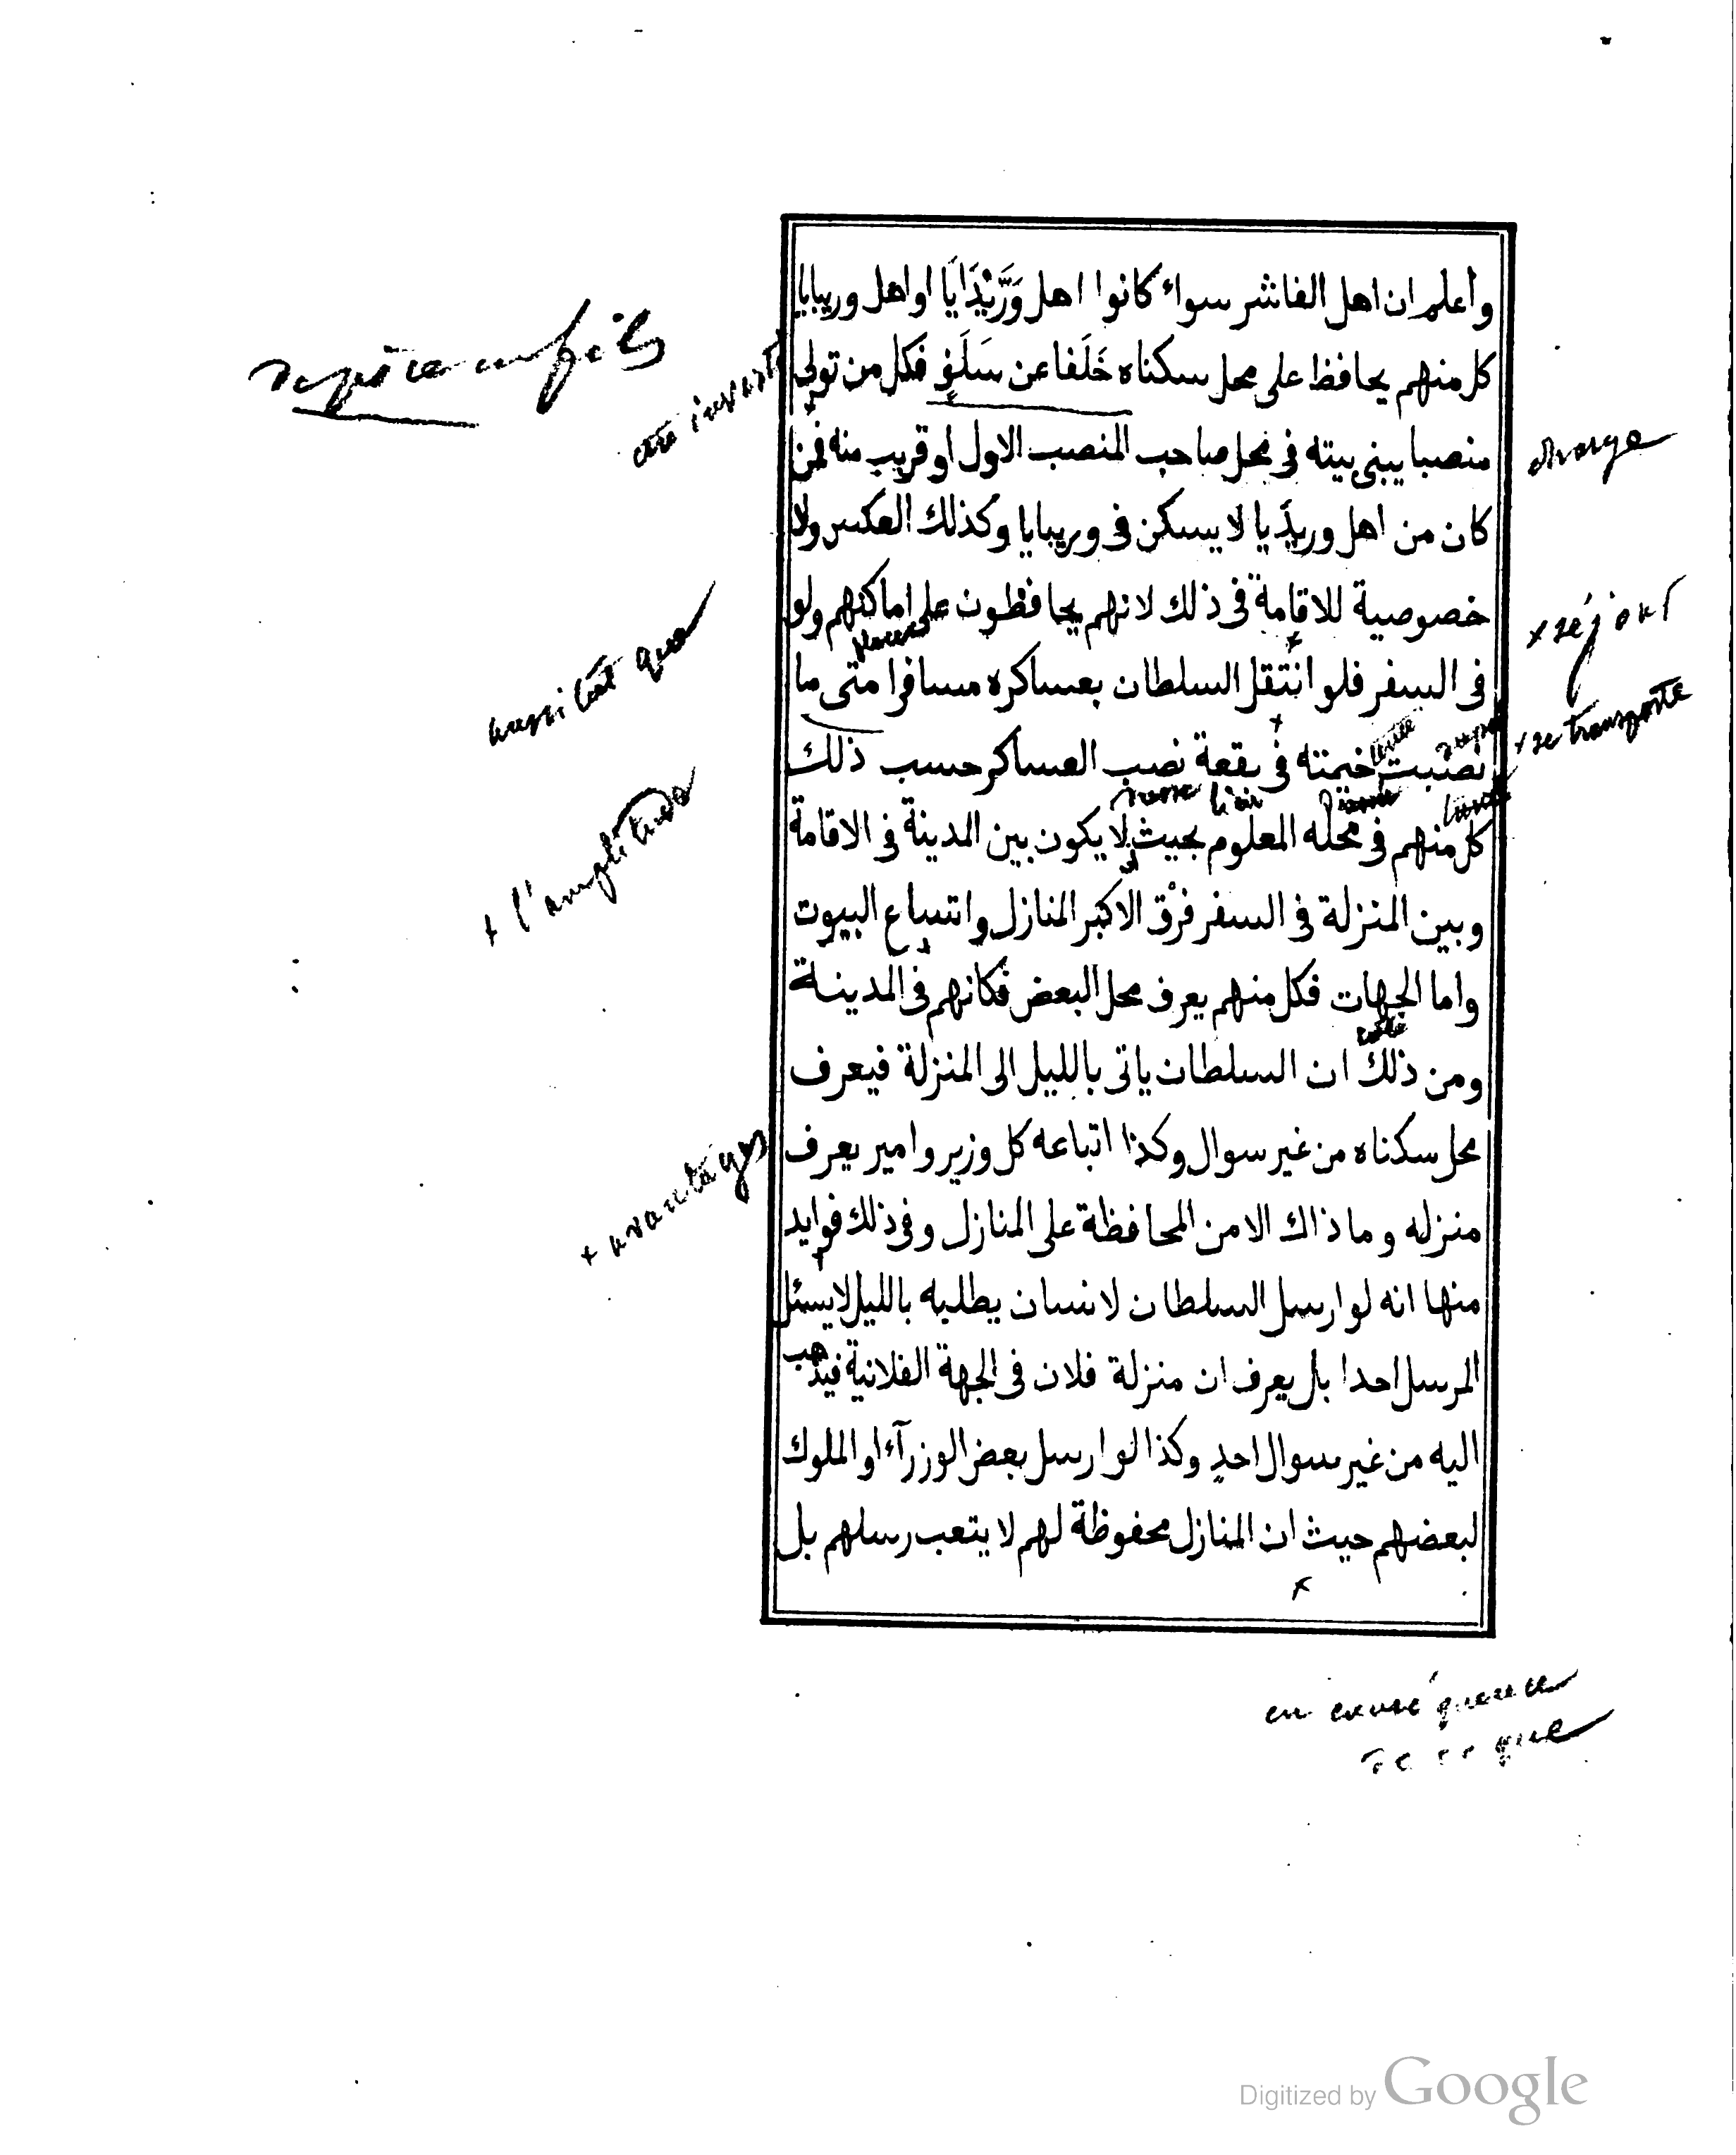 وأعلم ان اهل الفاشر سواء كانوا اهل وَرَّيْدَايَا او اهل وريبايا
كل منهم يحافظ على محل سكناه خَلَفا عن سَلَفٍ فكل من تولى
منصبا يبنى بيته فى محل صاحب المنصب الاول او قريب منه فمن
كان من اهل وريدَيا لا يسكن فى وريبايا وكذلك العكس ولا
خصوصية للاقامة فى ذلك لانهم يحافظون على اماكنهم ولو
فى السفر فلو انتقل السلطان بعساكره مسافرا متى ما
نصبت خيمته فى بقعة نصب العساكر حسب ذلك
كل منهم فى محله المعلوم بحيث لا يكون بين المدينة فى الاقامة
وبين المنزلة فى السفر فرْق الا كبر المنازل واتساع البيوت
واما الجهات فكل منهم يعرف محل البعض فكانهم فى المدينة
ومن ذلك ان السلطان ياتى بالليل الى المنزلة فيعرف
محل سكناه من غير سوال وكذا اتباعه كل وزير وامير يعرف
منزله وما ذاك الا من المحافظة على المنازل وفى ذلك فوايد
منها انه لو ارسل السلطان لانسان يطلبه بالليل لا يسئل
المرسل احدا بل يعرف ان منزلة فلان فى الجهة الفلانية فيذهب
اليه من غير سوال احدٍ وكذا لو ارسل بعض الوزرآء او الملوك
لبعضهم حيث ان المنازل محفوظة لهم لا يتعب رسلهم بل
de père en fils
été investi
charge
+ séjour
aussitôt que
+ se transporte
+ l'amplitude
+ avantages
en conséquence
de ce que
Digitized by Google